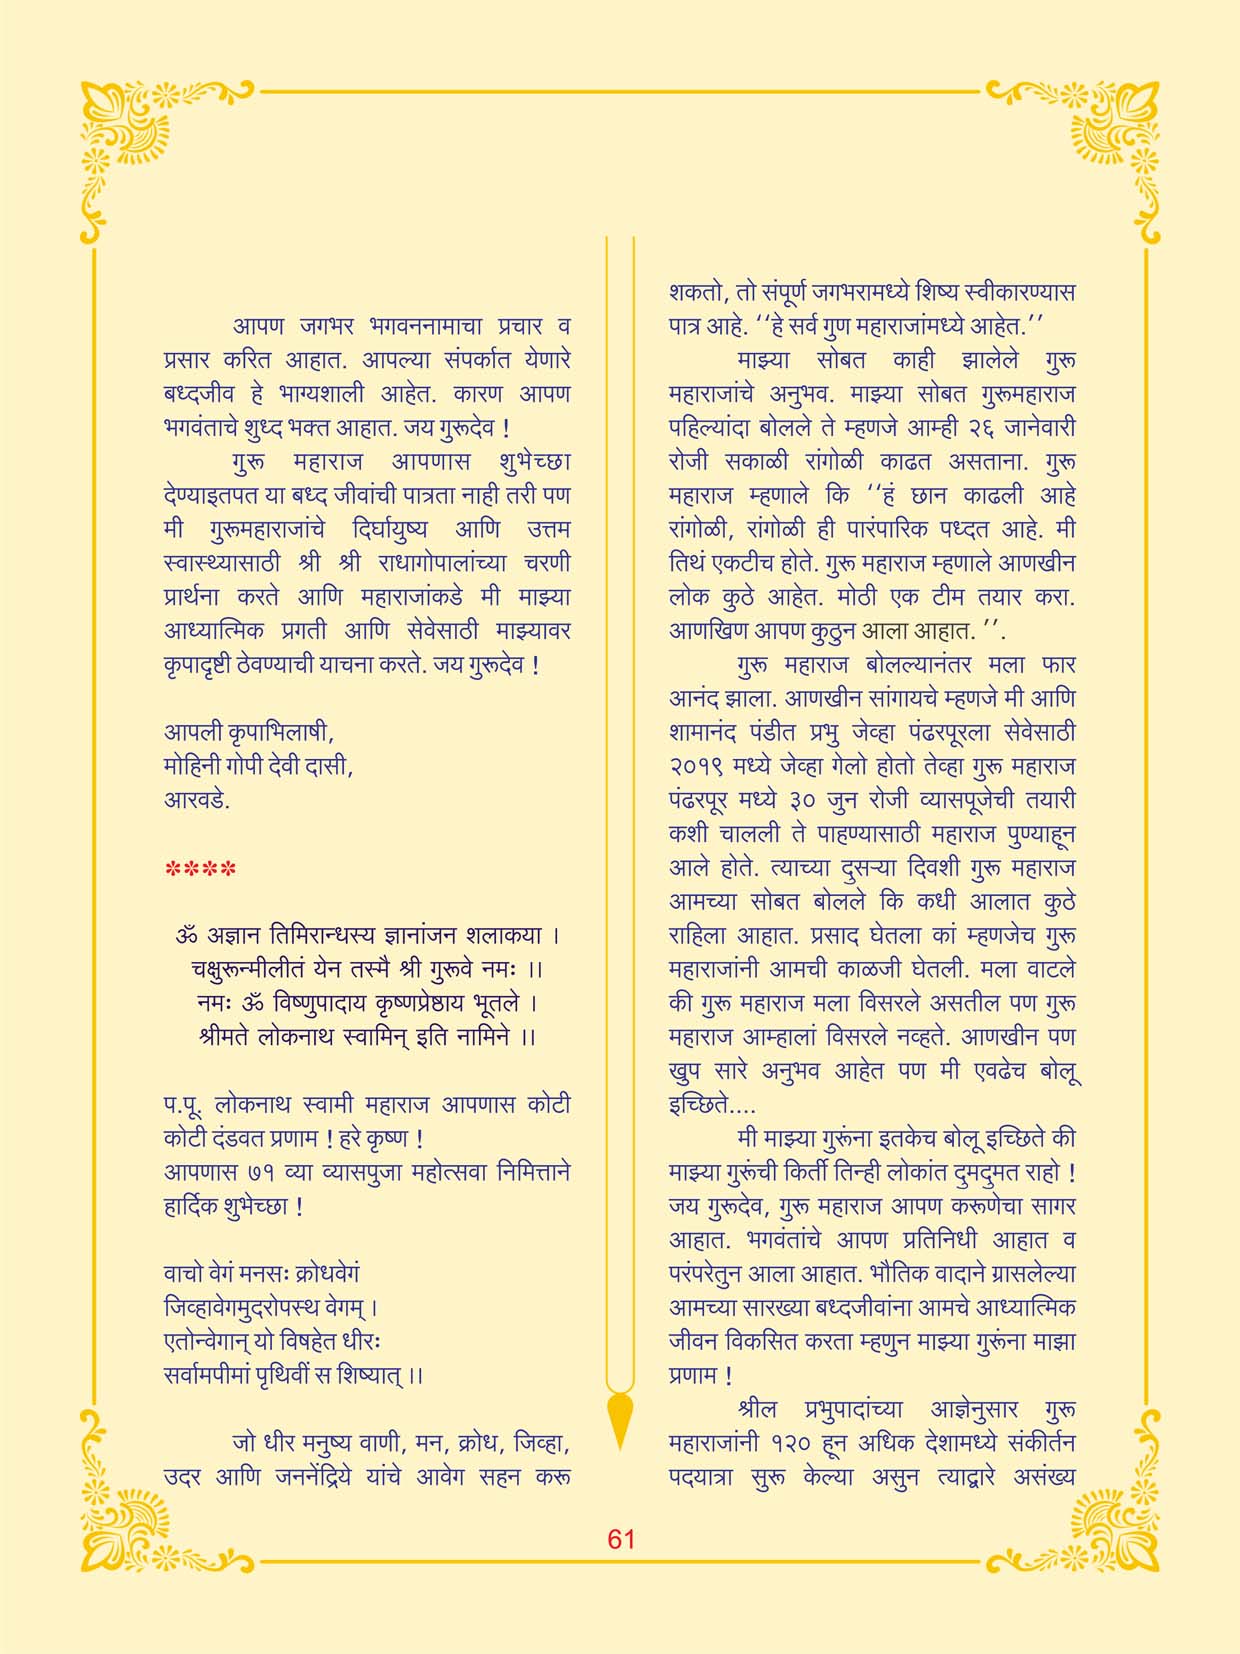 आपण जगभर भगवननामाचा प्रचार व
प्रसार करित आहात. आपल्या संपर्कात येणारे
बध्दजीव हे भाग्यशाली आहेत. कारण आपण
भगवंताचे शुध्द भक्त आहात. जय गुरूदेव !
गुरू महाराज आपणास शुभेच्छा
देण्याइतपत या बध्द जीवांची पात्रता नाही तरी पण
मी गुरूमहाराजांचे दिर्घायुष्य आणि उत्तम
स्वास्थ्यासाठी श्री श्री राधागोपालांच्या चरणी
प्रार्थना करते आणि महाराजांकडे मी माझ्या
आध्यात्मिक प्रगती आणि सेवेसाठी माझ्यावर
कृपादृष्टी ठेवण्याची याचना करते. जय गुरूदेव !
आपली कृपाभिलाषी,
मोहिनी गोपी देवी दासी,
आरवडे.
****
ॐ अज्ञान तिमिरान्धस्य ज्ञानांजन शलाकया ।
चक्षुरून्मीलीतं येन तस्मै श्री गुरूवे नमः ।।
नमः ॐ विष्णुपादाय कृष्णप्रेष्ठाय भूतले ।
श्रीमते लोकनाथ स्वामिन् इति नामिने ।।
प.पू. लोकनाथ स्वामी महाराज आपणास कोटी
कोटी दंडवत प्रणाम ! हरे कृष्ण !
आपणास ७१ व्या व्यासपुजा महोत्सवा निमित्ताने
हार्दिक शुभेच्छा !
वाचो वेगं मनसः क्रोधवेगं
जिव्हावेगमुदरोपस्थ वेगम् ।
एतोन्वेगान् यो विषहेत धीरः
सर्वामपीमां पृथिवीं स शिष्यात् ।।
जो धीर मनुष्य वाणी, मन, क्रोध, जिव्हा,
उदर आणि जननेंद्रिये यांचे आवेग सहन करू
शकतो, तो संपूर्ण जगभरामध्ये शिष्य स्वीकारण्यास
पात्र आहे. ‘‘हे सर्व गुण महाराजांमध्ये आहेत.’’
माझ्या सोबत काही झालेले गुरू
महाराजांचे अनुभव. माझ्या सोबत गुरूमहाराज
पहिल्यांदा बोलले ते म्हणजे आम्ही २६ जानेवारी
रोजी सकाळी रांगोळी काढत असताना. गुरू
महाराज म्हणाले कि ‘‘हं छान काढली आहे
रांगोळी, रांगोळी ही पारंपारिक पध्दत आहे. मी
तिथं एकटीच होते. गुरू महाराज म्हणाले आणखीन
लोक कुठे आहेत. मोठी एक टीम तयार करा.
आणखिण आपण कुठुन आला आहात. ’’.
गुरू महाराज बोलल्यानंतर मला फार
आनंद झाला. आणखीन सांगायचे म्हणजे मी आणि
शामानंद पंडीत प्रभु जेव्हा पंढरपूरला सेवेसाठी
२०१९ मध्ये जेव्हा गेलो होतो तेव्हा गुरू महाराज
पंढरपूर मध्ये ३० जुन रोजी व्यासपूजेची तयारी
कशी चालली ते पाहण्यासाठी महाराज पुण्याहून
आले होते. त्याच्या दुसऱ्या दिवशी गुरू महाराज
आमच्या सोबत बोलले कि कधी आलात कुठे
राहिला आहात. प्रसाद घेतला कां म्हणजेच गुरू
महाराजांनी आमची काळजी घेतली. मला वाटले
की गुरू महाराज मला विसरले असतील पण गुरू
महाराज आम्हालां विसरले नव्हते. आणखीन पण
खुप सारे अनुभव आहेत पण मी एवढेच बोलू
इच्छिते....
मी माझ्या गुरूंना इतकेच बोलू इच्छिते की
माझ्या गुरूंची किर्ती तिन्ही लोकांत दुमदुमत राहो !
जय गुरूदेव, गुरू महाराज आपण करूणेचा सागर
आहात. भगवंतांचे आपण प्रतिनिधी आहात व
परंपरेतुन आला आहात. भौतिक वादाने ग्रासलेल्या
आमच्या सारख्या बध्दजीवांना आमचे आध्यात्मिक
जीवन विकसित करता म्हणुन माझ्या गुरूंना माझा
प्रणाम !
श्रील प्रभुपादांच्या आज्ञेनुसार गुरू
महाराजांनी १२० हून अधिक देशामध्ये संकीर्तन
पदयात्रा सुरू केल्या असुन त्याद्वारे असंख्य
61